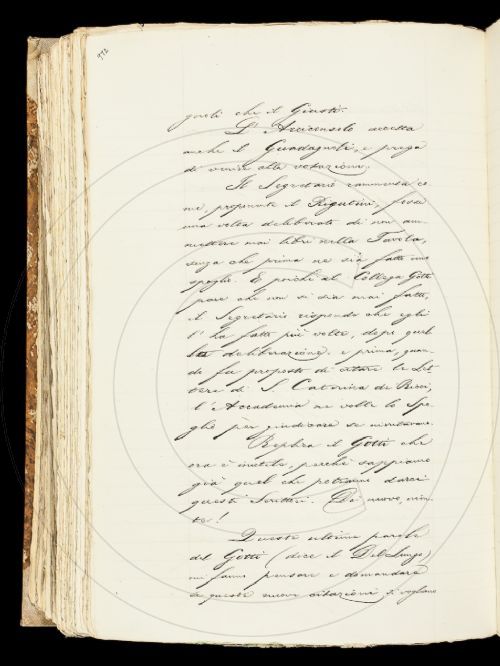 972
quali che il Giusti.
L'Arciconsolo accetta
anche il Guadagnoli, e prega
di venire alla votazione.
Il Segretario rammenta co
me, proponente il Rigutini, fosse
una volta deliberato di non am-
mettere mai libri nella Tavola,
senza che prima ne sia fatto uno
spoglio. E poichè al Collega Gotti
pare che non si sia mai fatto,
il Segretario risponde che egli
l'ha fatto più volte, dopo quel
la deliberazione. e prima, quan-
do fu proposto di citare le Let
tere di S. Caterina de Ricci,
l'Accademia ne volle lo Spo
glio per giudicare se
Replica il Gotti che
ora è inutile, perchè sappiamo
già quel che potranno darci
questi Scrittori. Di nuovo, nien-
te!
Queste ultime parole
del Gotti (dice il Del Lungo)
mi fanno pensare e domandare
se queste nuove citazioni si vogliano